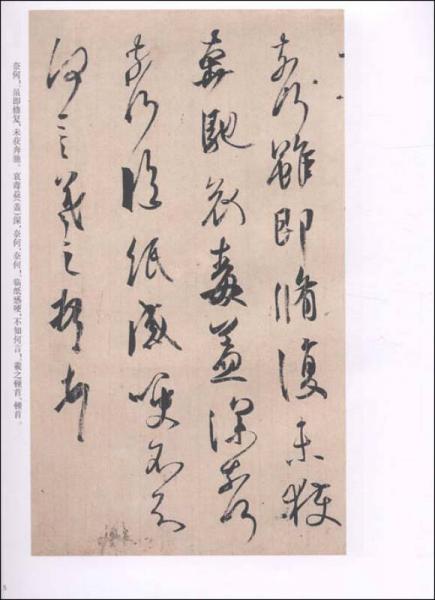 奈何雖即脩復未獲
奔馳哀毒益深奈何
奈何臨紙感哽不知
何言羲之頓首頓首
奈何，虽即修复，未获奔驰，哀毒益（盖）深，奈何、奈何，临纸感哽，不知何言，羲之顿首、顿首。
5